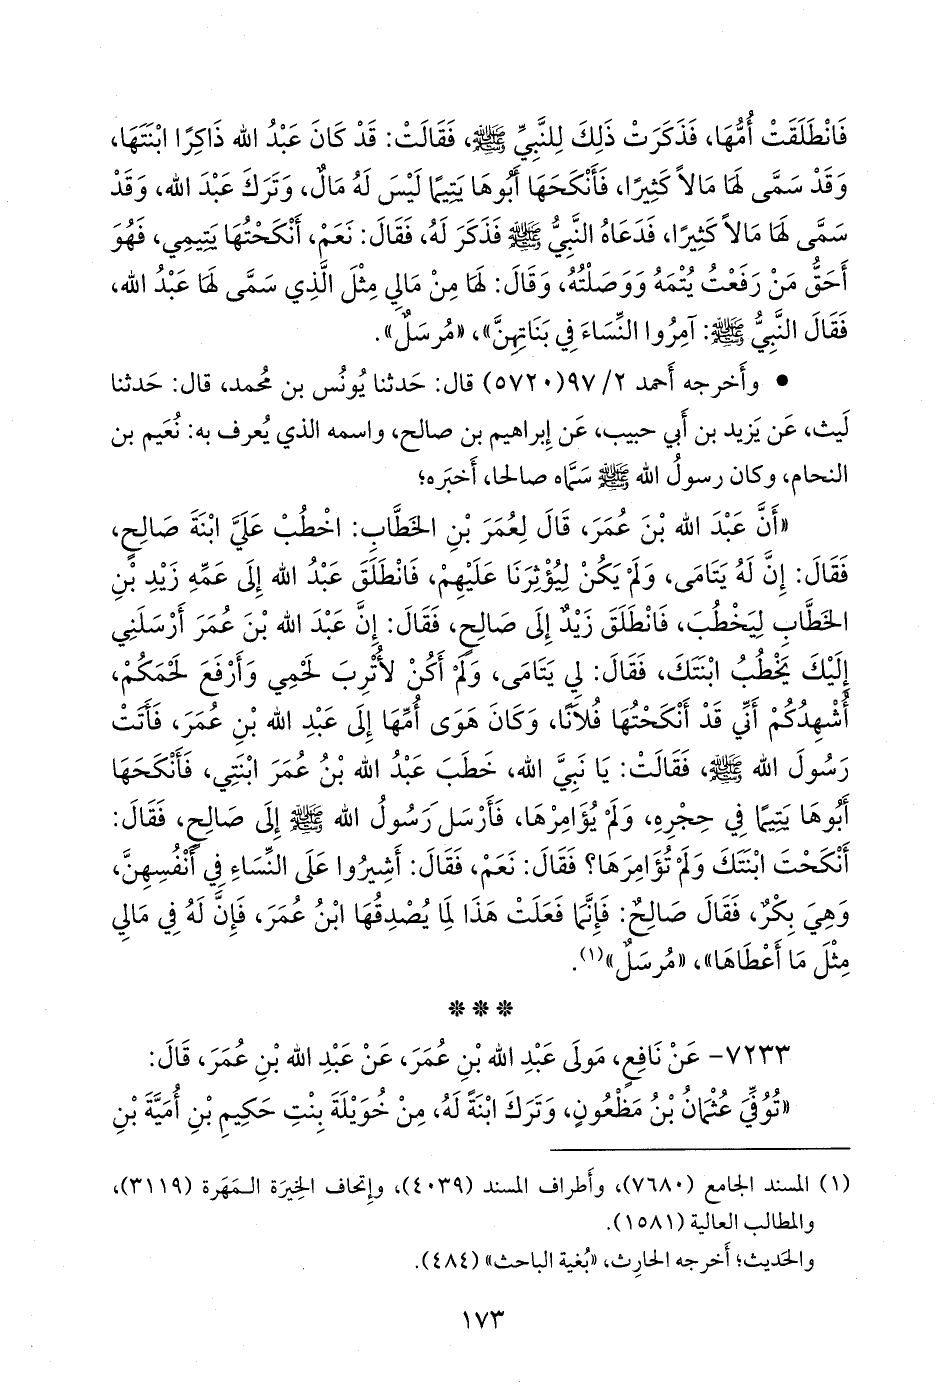 فَانْطَلَقَتْ أُمُّهَا، فَذَكَرَتْ ذَلِكَ لِلنَّبِيِّ ﷺ، فَقَالَتْ: قَدْ كَانَ عَبْدُ الله ذَاكِرًا ابْنَتَهَا،
وَقَدْ سَمَّى لَهَا مَالاً كَثِيرًا، فَأَنْكَحَهَا أَبُوهَا يَتِيمًا لَيْسَ لَهُ مَالٌ، وَتَرَكَ عَبْدَ الله، وَقَدْ
سَمَّى لَهَا مَالاً كَثِيرًا، فَدَعَاهُ النَّبِيُّ ﷺ فَذَكَرَ لَهُ، فَقَالَ: نَعَمْ، أَنْكَحْتُهَا يَتِيمِي، فَهُوَ
أَحَقُّ مَنْ رَفَعْتُ يُتْمَهُ وَوَصَلْتُهُ، وَقَالَ: لَهَا مِنْ مَالِي مِثْلَ الَّذِي سَمَّى لَهَا عَبْدُ الله،
فَقَالَ النَّبِيُّ ﷺ: آمِرُوا النِّسَاءَ فِي بَنَاتِهِنَّ»، «مُرسَلٌ».
• وأَخرجه أَحمد ٢/ ٩٧(٥٧٢٠) قال: حَدثنا يُونُس بن مُحمد، قال: حَدثنا
لَيث، عَن يَزيد بن أَبي حبيب، عَن إِبراهيم بن صالح، واسمه الذي يُعرف به: نُعَيم بن
النحام، وكان رسولُ الله ﷺ سَمَّاه صالحا، أَخبَره؛
«أَنَّ عَبْدَ الله بْنَ عُمَرَ، قَالَ لِعُمَرَ بْنِ الخَطَّابِ: اخْطُبْ عَلَيَّ ابْنَةَ صَالِحٍ،
فَقَالَ: إِنَّ لَهُ يَتَامَى، وَلَمْ يَكُنْ لِيُؤْثِرَنَا عَلَيْهِمْ، فَانْطَلَقَ عَبْدُ الله إِلَى عَمِّهِ زَيْدِ بْنِ
الخَطَّابِ لِيَخْطُبَ، فَانْطَلَقَ زَيْدٌ إِلَى صَالِحٍ، فَقَالَ: إِنَّ عَبْدَ الله بْنَ عُمَرَ أَرْسَلَنِي
إِلَيْكَ يَخْطُبُ ابْنَتَكَ، فَقَالَ: لِي يَتَامَى، وَلَمْ أَكُنْ لأُتْرِبَ لَحْمِي وَأَرْفَعَ لَحْمَكُمْ،
أُشْهِدُكُمْ أَنِّي قَدْ أَنْكَحْتُهَا فُلاَنًا، وَكَانَ هَوَى أُمِّهَا إِلَى عَبْدِ الله بْنِ عُمَرَ، فَأَتَتْ
رَسُولَ الله ﷺ، فَقَالَتْ: يَا نَبِيَّ الله، خَطَبَ عَبْدُ الله بْنُ عُمَرَ ابْنَتِي، فَأَنْكَحَهَا
أَبُوهَا يَتِيمًا فِي حِجْرِهِ، وَلَمْ يُؤَامِرْهَا، فَأَرْسَلَ رَسُولُ الله ﷺ إِلَى صَالِحٍ، فَقَالَ:
أَنْكَحْتَ ابْنَتَكَ وَلَمْ تُؤَامِرَهَا؟ فَقَالَ: نَعَمْ، فَقَالَ: أَشِيرُوا عَلَى النِّسَاءِ فِي أَنْفُسِهِنَّ،
وَهِيَ بِكْرٌ، فَقَالَ صَالِحٌ: فَإِنَّمَا فَعَلَتْ هَذَا لِمَا يُصْدِقُهَا ابْنُ عُمَرَ، فَإِنَّ لَهُ فِي مَالِي
مِثْلَ مَا أَعْطَاهَا»، «مُرسَلٌ»(١).
***
٧٢٣٣- عَنْ نَافِعٍ، مَولَى عَبْدِ الله بْنِ عُمَرَ، عَنْ عَبْدِ الله بْنِ عُمَرَ، قَالَ:
«تُوُفِّيَ عُثْمَانُ بْنُ مَظْعُونٍ، وَتَرَكَ ابْنَةً لَهُ، مِنْ خُوَيْلَةَ بِنْتِ حَكِيمِ بْنِ أُمَيَّةَ بْنِ
(١) المسند الجامع (٧٦٨٠)، وأَطراف المسند (٤٠٣٩)، وإتحاف الخِيرَة الـمَهَرة (٣١١٩)،
والمطالب العالية (١٥٨١).
والحَديث؛ أَخرجه الحارِث، «بُغية الباحث» (٤٨٤).
١٧٣